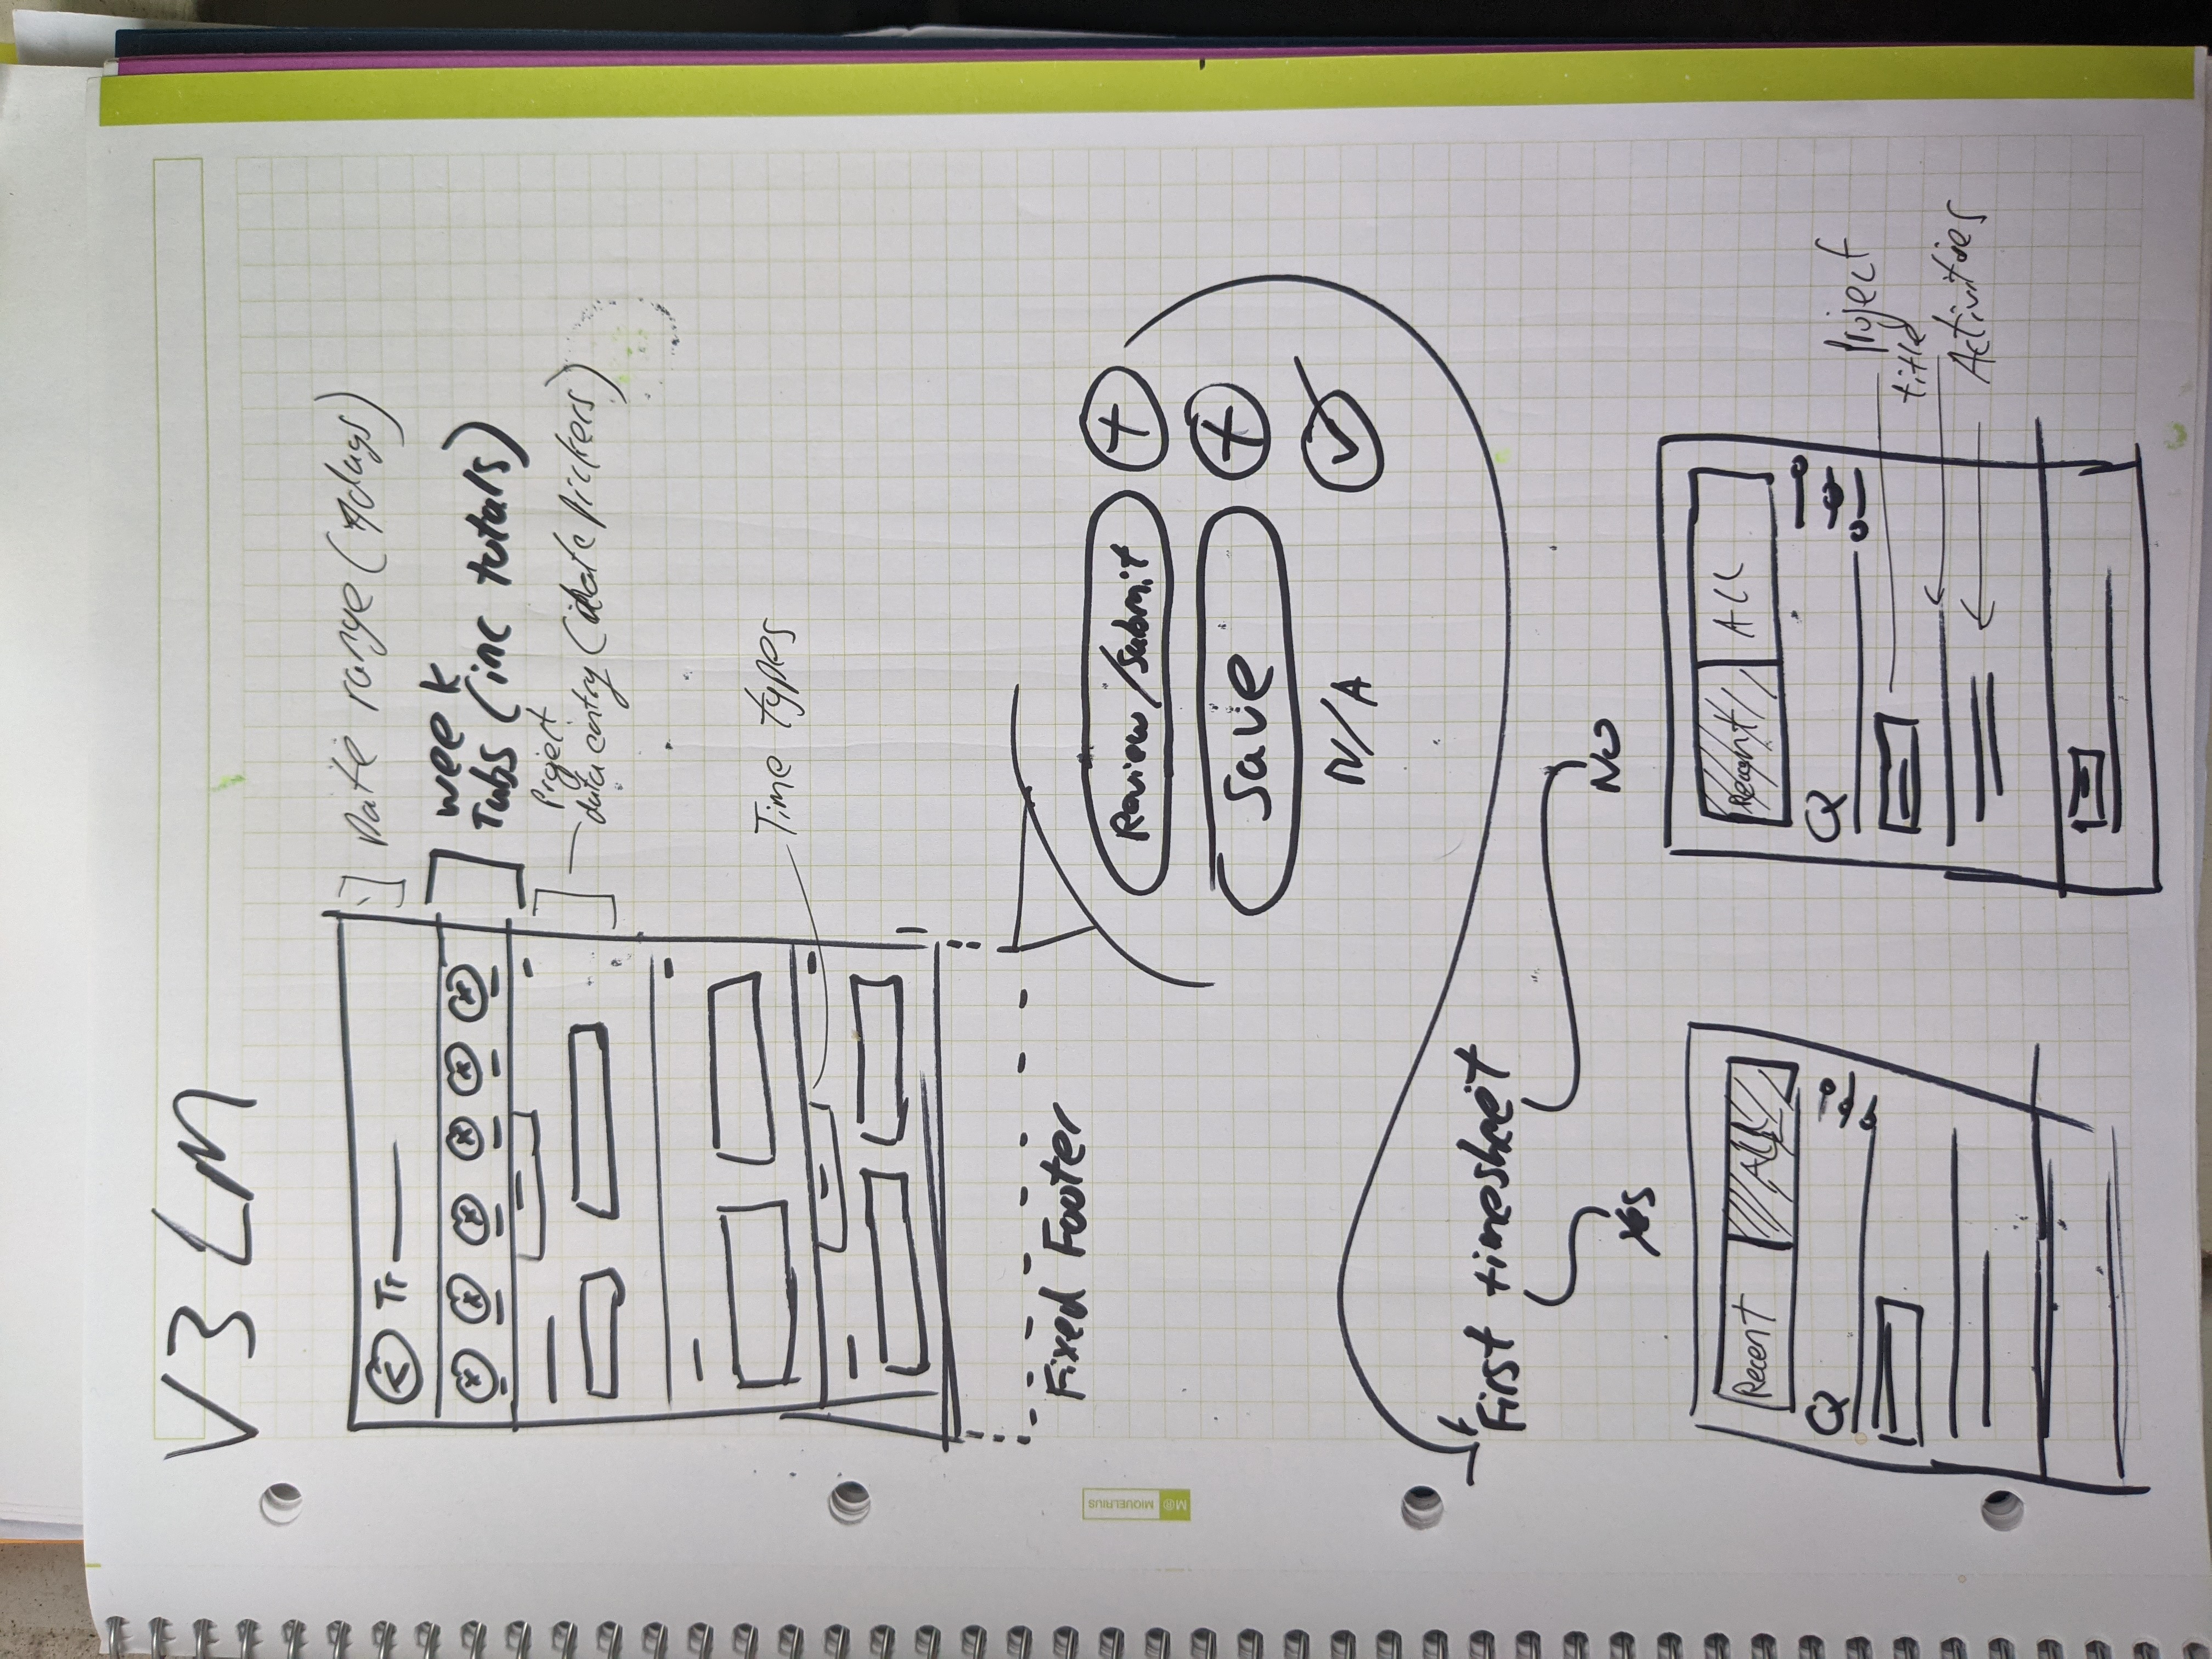 V3 LM
Date range (7 days)
Tr
week
Tabs (inc totals)
Project
data entry (date pickers)
Time types
Fixed Footer
Review/Submit
+
Save
+
N/A
First timesheet
Yes
No
Recent
ALL
Recent
ALL
Project
title
Activities
M® MIQUELRIUS